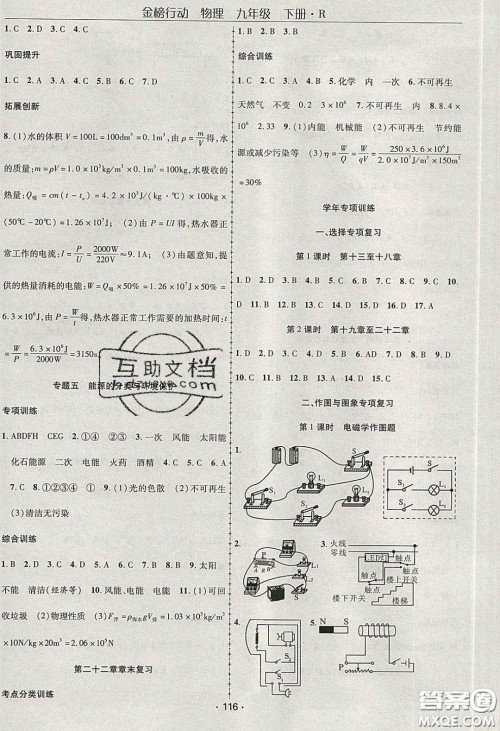 金榜行动 物理 九年级 下册·R
1. C 2. C 3. A 4. D 5. D
巩固提升
1. C 2. A 3. C 4. D 5. C 6. C 7. D
拓展创新
8. (1)水的体积 V=100L=100dm³=0.1m³,由 ρ=m/V 得,水的质量:m=ρV=1.0×10³kg/m³×0.1m³=100kg,水吸收的热量:Q吸=cm(t-t₀)=4.2×10³J/(kg·℃)×100kg×
(50℃-20℃)=1.26×10⁷J (2)由 P=UI 得,热水器正常工作的电流:I=P/U=2000W/220V≈9.1A (3)由题意知,提
供的热量消耗的电能:W=
6.3×10⁶J,由 P=W/t 得,热水器正常工作需要的加热时间:t
=W/P=6.3×10⁶J/2000W=3150s
专题五 能源的分类与环境保护
专项训练
1. ABDFH CEG 2. ①④ ②③ 3. 一次 风能 太阳能
化石能源 4. 二次 电能 火药 酒精 5. D 6. C
7. C 8. ①②③④ ①⑤ 9. (1)光的色散 (2)不可再生
(3)清洁无污染
综合训练
1. B 2. D 3. B 4. C 5. C 6. A 7. B 8. D 9. 太阳
不能 清洁(经济等) 10. 风能、电能 不可再生 11. (1)可
收垃圾 (2)物理性质 (3)F浮=ρ海水gV排=1.03×10³kg/m³
×10N/kg×20m³=2.06×10⁵N
第二十二章章末复习
考点分类训练
1. B 2. B 3. B
综合训练
1. C 2. B 3. A 4. B 5. 化学 内 一次 6. 不可再生
天然气 不变 0.2 3×10⁶ 7. 不可再生 内 8. 8.4×
10⁶ 2.33 9. (1)内能 机械能 (2)不可再生 节约能
源或减少污染等 (3)η=W/Q=W/qV=250×3.6×10⁶J/2.0×10⁷J/m³×150m³
=30%
学年专项训练
一、选择专项复习
第1课时 第十三至十八章
1. B 2. D 3. B 4. C 5. B 6. D 7. C 8. C 9. C 10.
D 11. B 12. B 13. A 14. D 15. D 16. C 17. A
第2课时 第十九章至二十二章
1. D 2. D 3. C 4. D 5. B 6. C 7. B 8. C 9. D 10.
二、作图与图象专项复习
第1课时 电磁学作图题
1.
S
L₁
L₂
2.
3.
火线
零线
LED灯
触点
触点
楼上开关
触点
触点
楼下开关
楼梯
4.
5.
N
S
P
互助文档
· 116 ·
答案圈
MXQE.COM